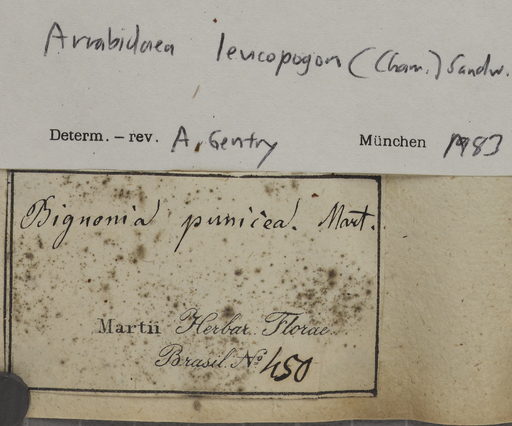 Arrabidaea leucopogon (Cham.) Sandw.
Determ. – rev. A. Gentry München 1983
Bignonia punicea. Mart.
Martii Herbar. Florae
Brasil. No 450